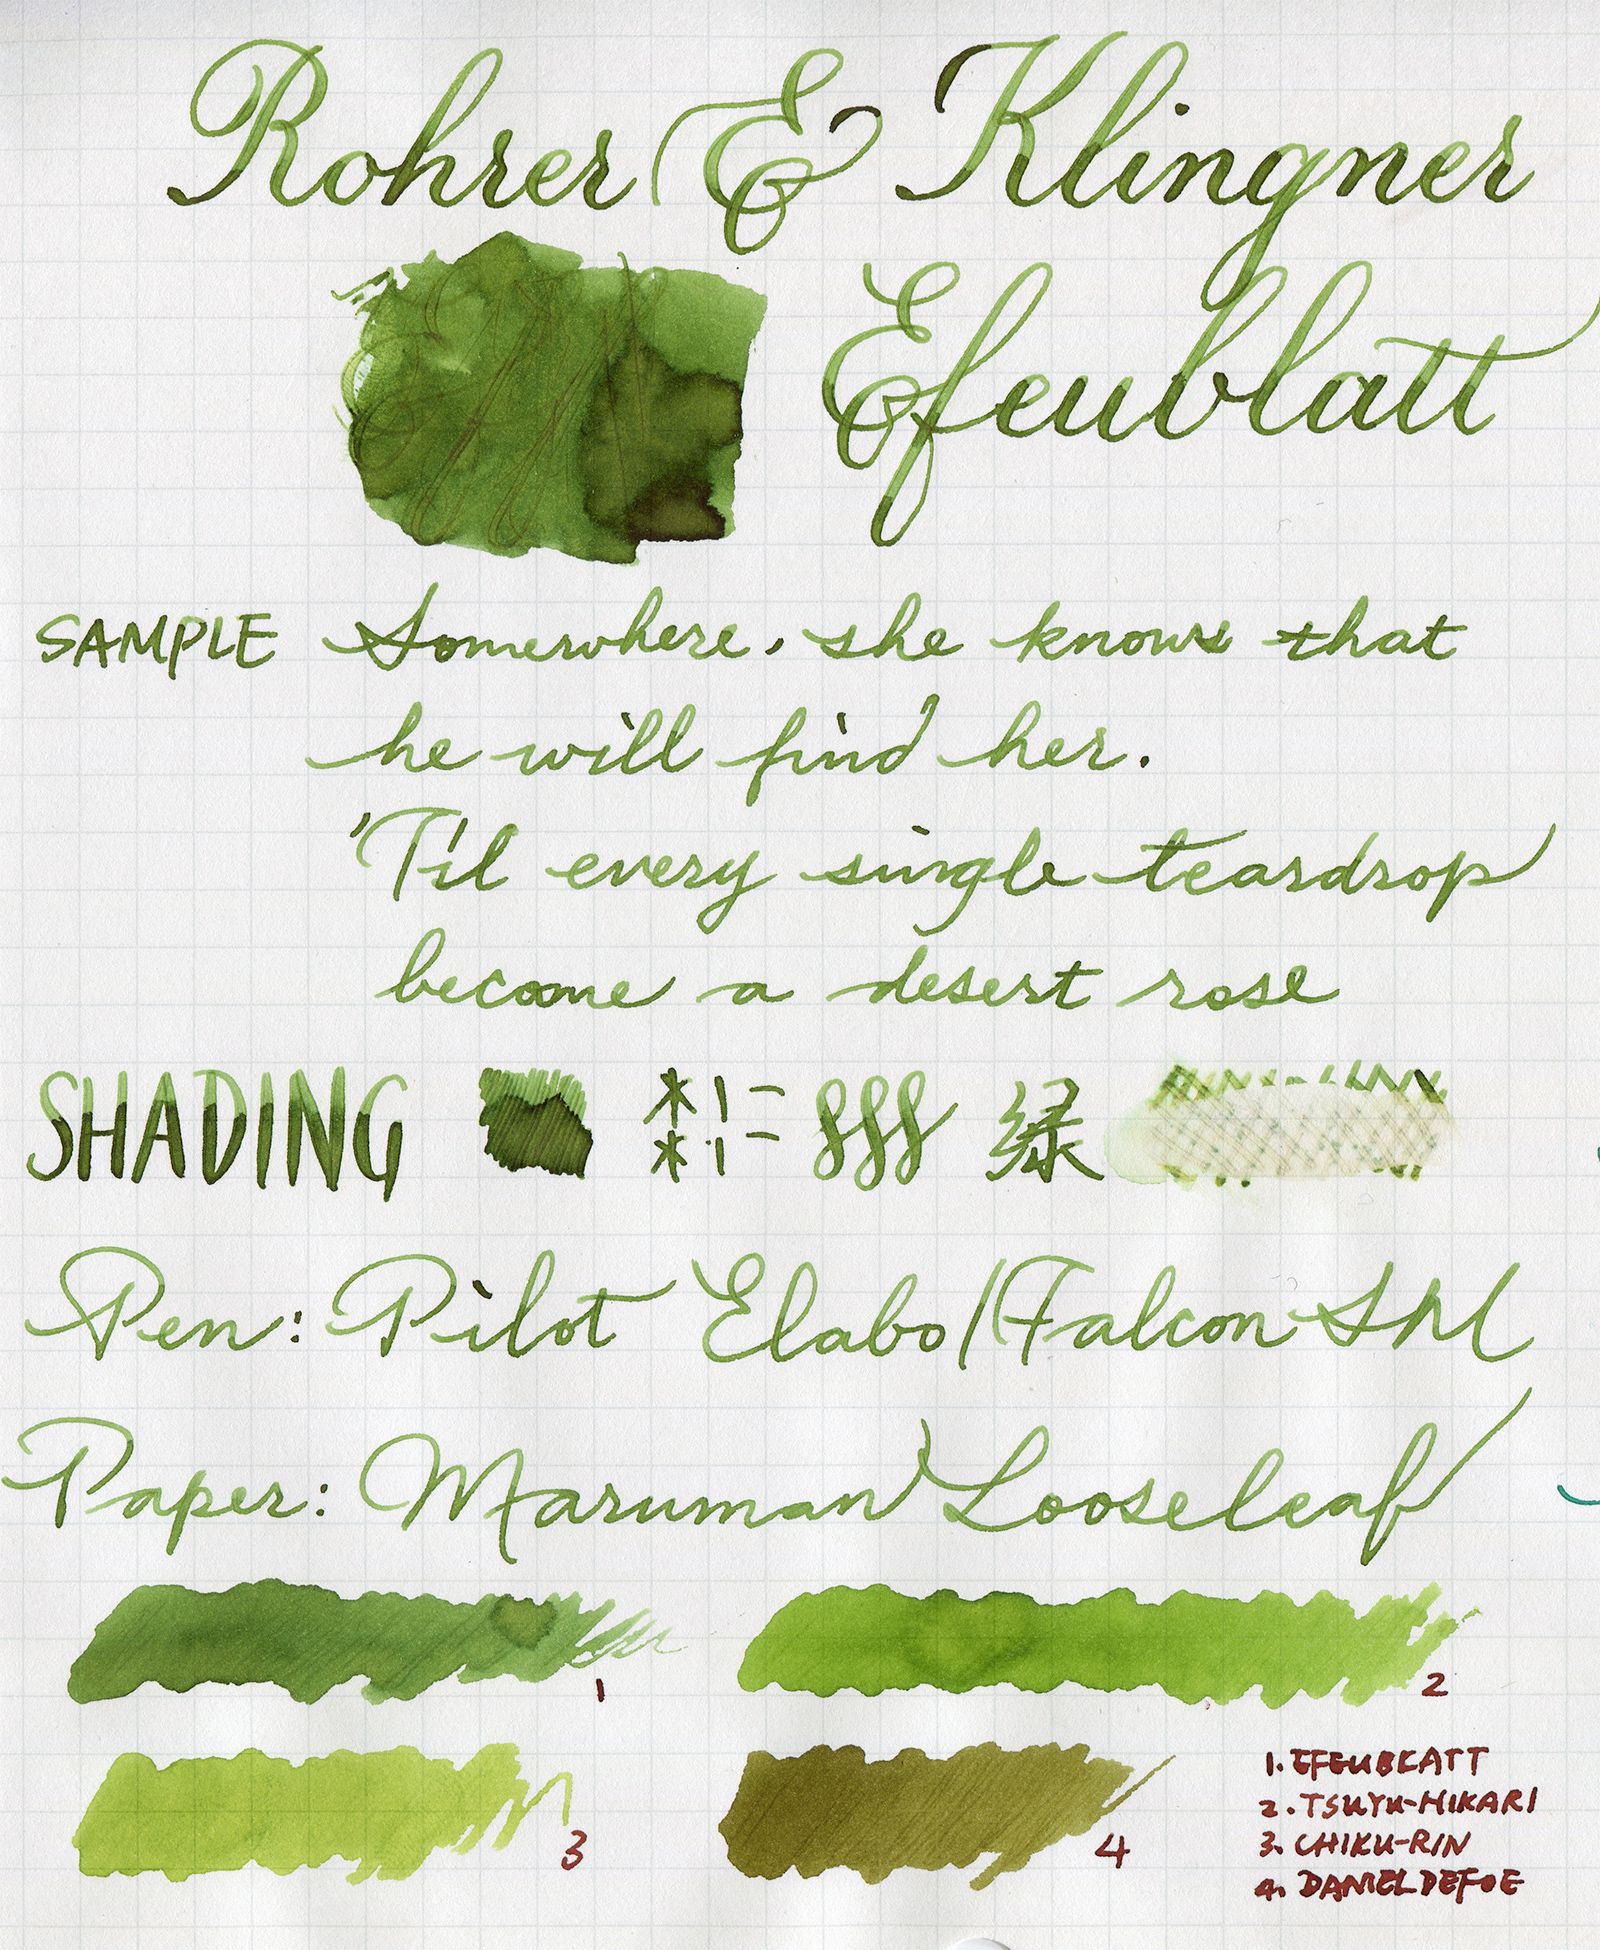 Rohrer & Klingner
Efeublatt
SAMPLE Somewhere, she knows that
he will find her.
'Til every single teardrop
become a desert rose
SHADING 緑
Pen: Pilot Elabo/Falcon SM
Paper: Maruman Looseleaf
1 2
3 4
1. EFEUBLATT
2. TSUYU-HIKARI
3. CHIKU-RIN
4. DANIEL DEFOE